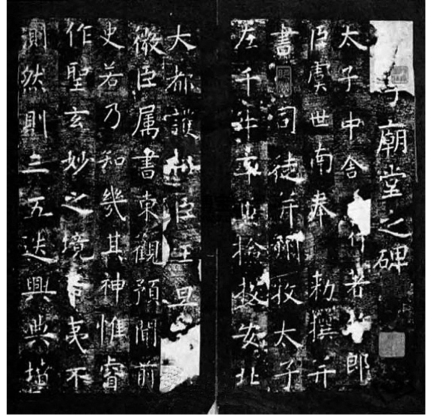 子廟堂之碑
太子中舍行著作郎
臣虞世南奉勅撰并
書司徒并州牧太子
左千牛率兼撿校安北
大都護相臣王旦
微臣属書東觀預聞前
史若乃知幾其神惟睿
作聖玄妙之境希夷不
測然則三五迭興典墳